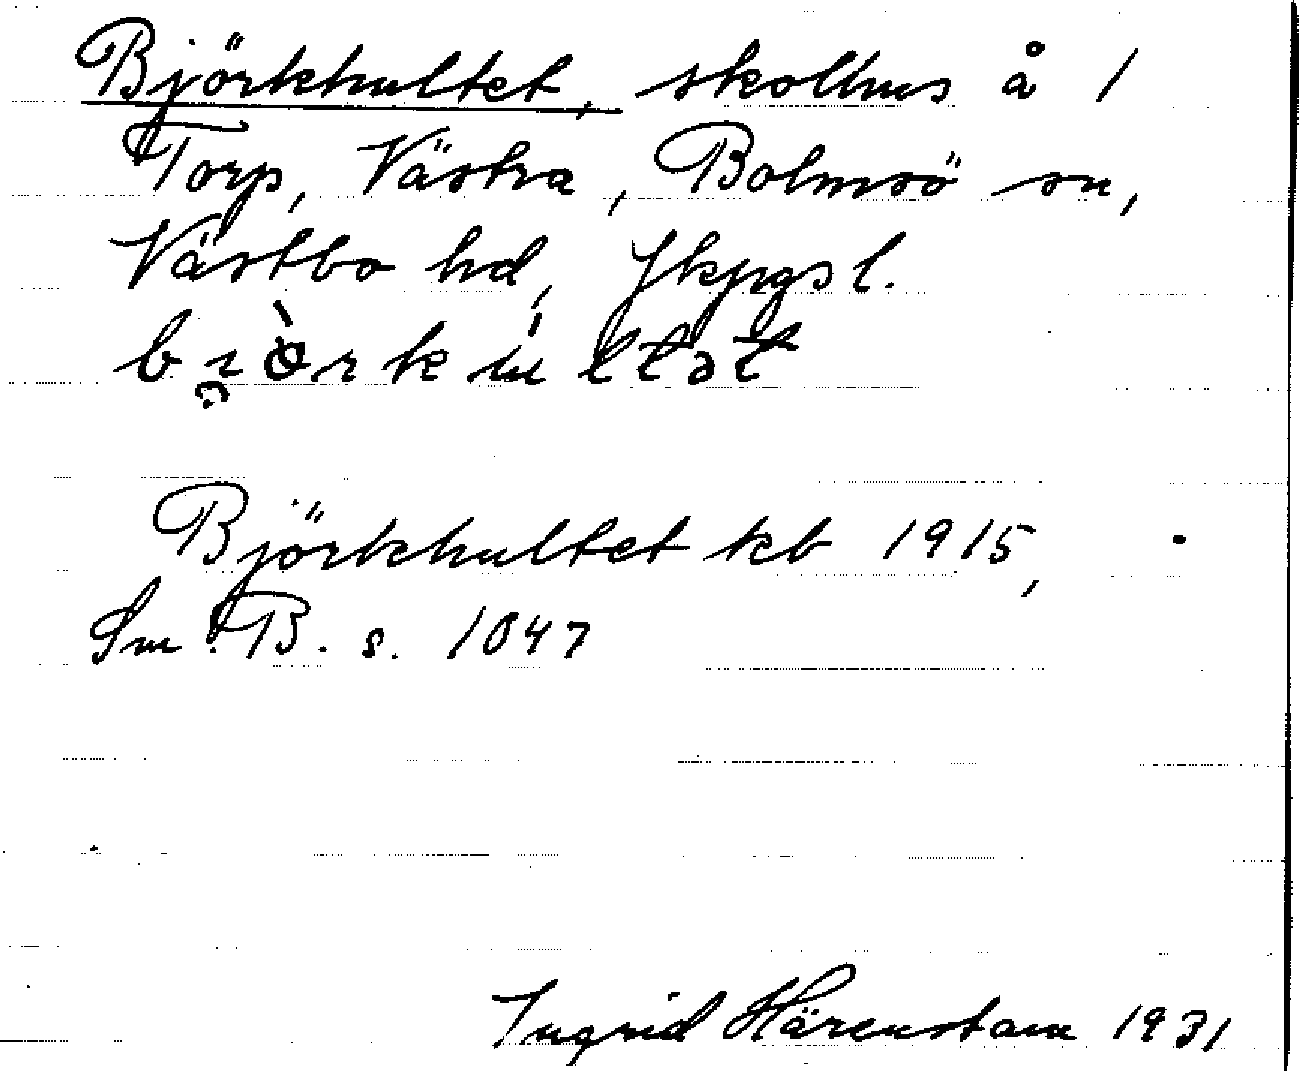 Björkhultet, skolhus å 1
Torp, Västra, Bolmsö sn,
Västbo hd, Jkpgs l.
Björkhultet kb 1915,
Sm. B. s. 1047
Ingrid Härenstam 1931